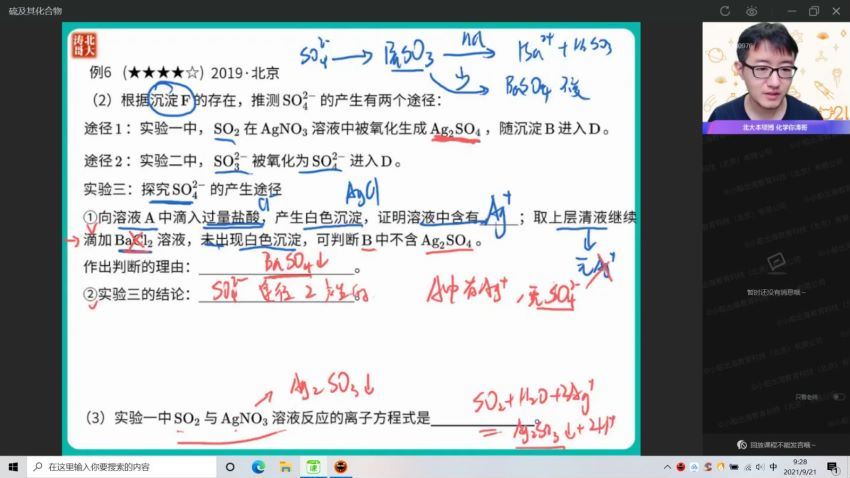 硫及其化合物
北大
涛哥
SO₄²⁻ → BaSO₃ → Ba²⁺ + H₂SO₃
BaSO₄
例6 (★★★★☆) 2019·北京
(2) 根据沉淀F的存在，推测SO₄²⁻的产生有两个途径：
途径1：实验一中，SO₂在AgNO₃溶液中被氧化生成Ag₂SO₄，随沉淀B进入D。
途径2：实验二中，SO₃²⁻被氧化为SO₄²⁻进入D。
实验三：探究SO₄²⁻的产生途径
AgCl
Cl
①向溶液A中滴入过量盐酸，产生白色沉淀，证明溶液中含有 Ag⁺ ；取上层清液继续
滴加BaCl₂溶液，未出现白色沉淀，可判断B中不含Ag₂SO₄。
无Ag⁺
作出判断的理由：BaSO₄↓。
②实验三的结论：SO₄²⁻ 途径 2 产生的。
A中有Ag⁺，无SO₄²⁻
Ag₂SO₃↓
(3) 实验一中SO₂与AgNO₃溶液反应的离子方程式是 。
SO₂+H₂O+2Ag⁺
= Ag₂SO₃↓+2H⁺
北大本硕博 化学你涛哥
暂时还没有消息哦~
只看老师
回放课程不能发言哦~
在这里输入你要搜索的内容
中
9:28
2021/9/21